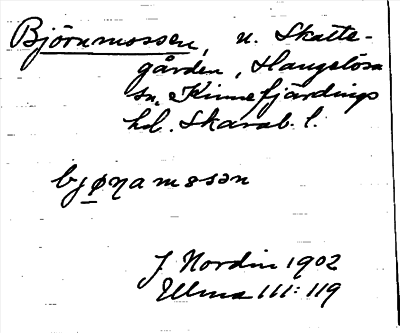 Björnmossen, n. Skatte-
gården, Haugelösa
sn, Kinnefjärdings
hd. Skarab. l.
bjørnamosən
J Nordin 1902
Ulma 111:119